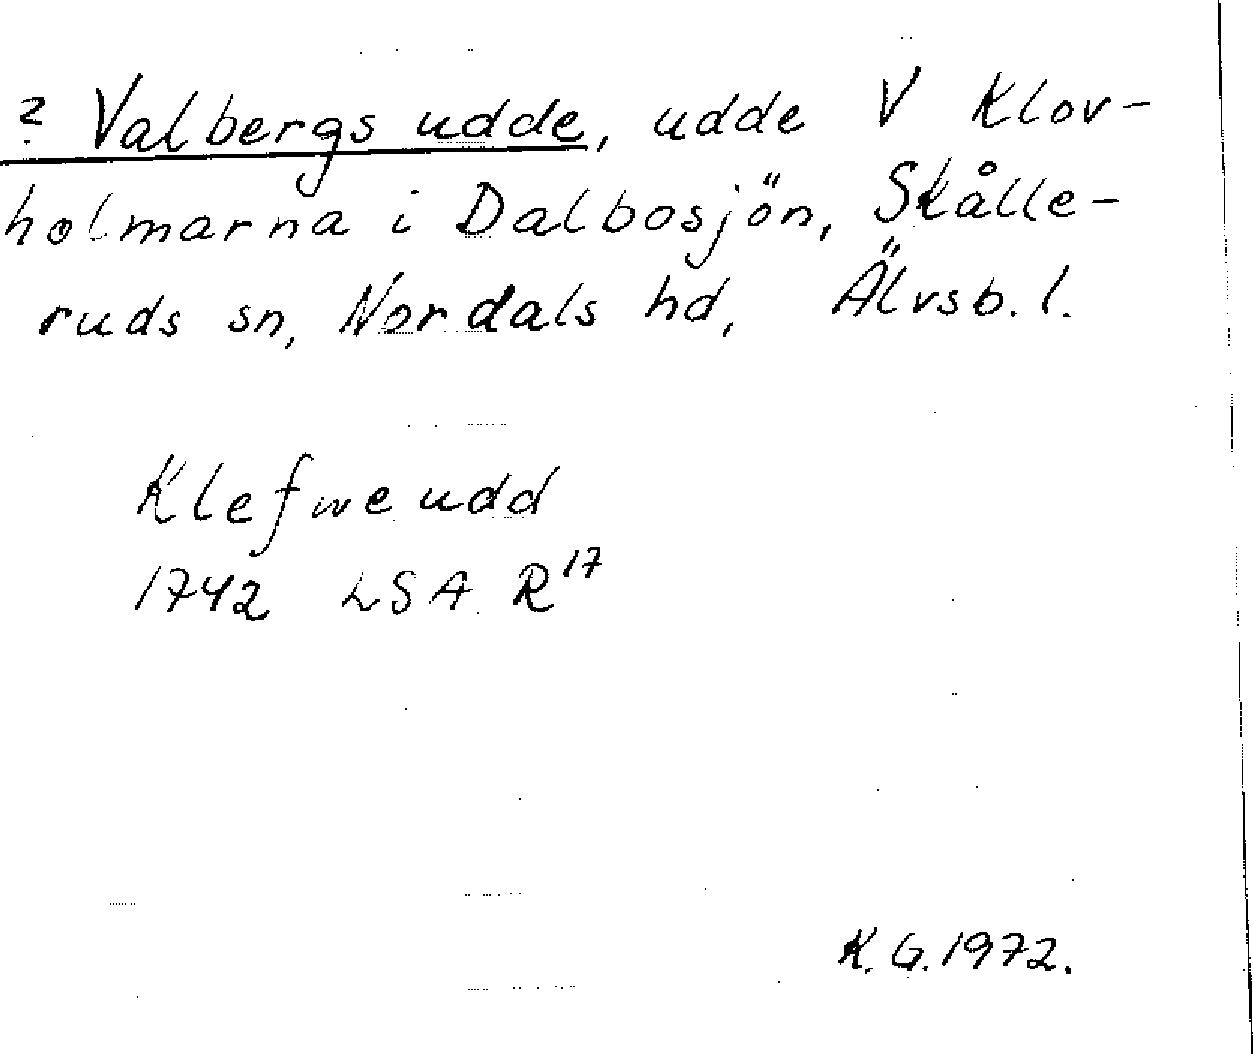 ? Valbergs udde, udde V Klov-
holmarna i Dalbosjön, Skålle-
ruds sn, Nordals hd, Älvsb. l.
Klefwe udd
1742 LSA R¹⁷
K. G. 1972.